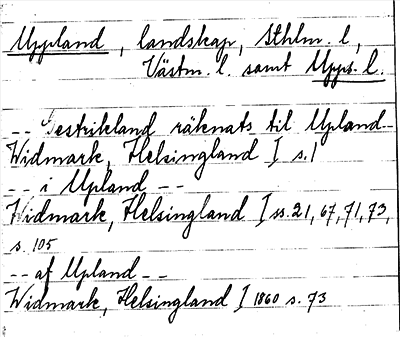 Uppland, landskap, Sthlm. l,
Västm. l. samt Upps. l.
-- Gestrikland räknats til Upland--
Widmark, Helsingland I s.1
-- i Upland --
Widmark, Helsingland I ss. 21, 67, 71, 73,
s. 105
-- af Upland --
Widmark, Helsingland I 1860 s. 73